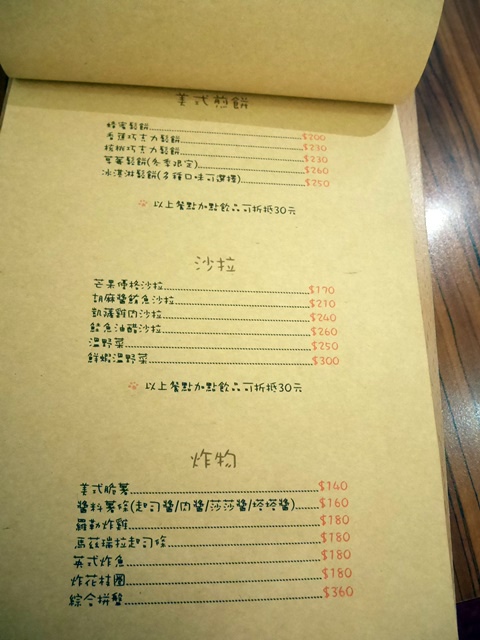 美式煎餅
蜂蜜鬆餅 $200
香蕉巧克力鬆餅 $230
核桃巧克力鬆餅 $230
草莓鬆餅(冬季限定) $260
冰淇淋鬆餅(多種口味可選擇) $250
以上餐點加點飲品可折抵30元
沙拉
芒果優格沙拉 $170
胡麻醬鮭魚沙拉 $210
凱薩雞肉沙拉 $240
鮭魚油醋沙拉 $260
溫野菜 $250
鮮蝦溫野菜 $300
以上餐點加點飲品可折抵30元
炸物
美式脆薯 $140
醬料薯條(起司醬/肉醬/莎莎醬/塔塔醬) $160
羅勒炸雞 $180
馬茲瑞拉起司條 $180
英式炸魚 $180
炸花枝圈 $180
綜合拼盤 $360